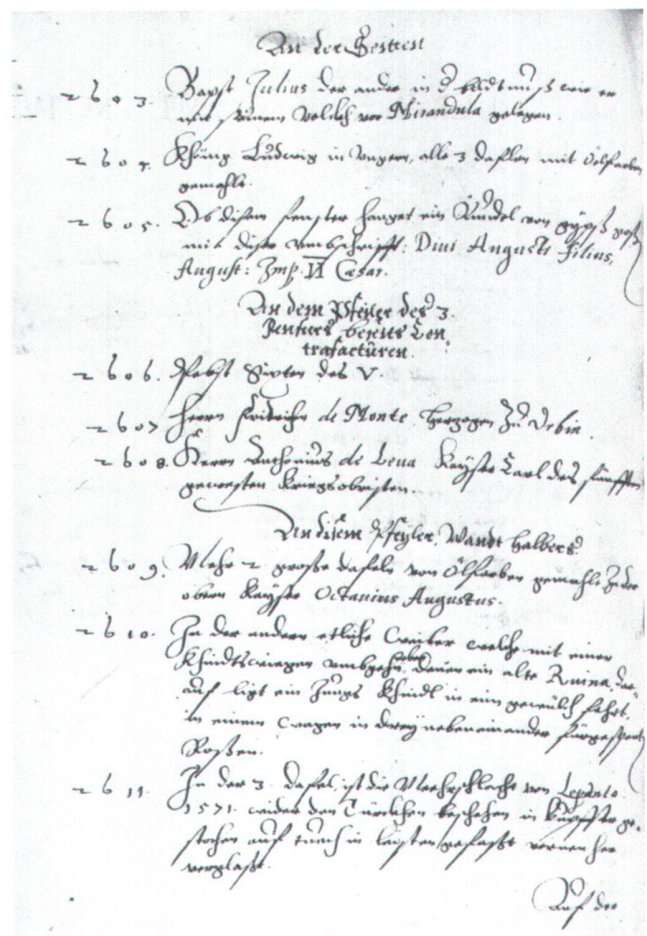 An der Seitten
2603. Bapst Julius der ander in d wie er
mit seinem Volckh vor Mirandula gelegen.
2604. Khünig Ludwig in Ungern, alle 3 daflen mit Ölfarben
gemahlt.
2605. Ob disem fenster hanget ein Rundel von gypß
mit diser umbschrifft: Divi Augusti Filius,
August: Imp. VI Cæsar.
An dem Pfeyler des 3.
Fensters Con
trafacturen.
2606. Pabst Sixten des V.
2607 Herrn Fridrichen de Monte Herzogen zu Urbin
2608. Herrn Anthonius de Leva Keyser Carl des fünfften
gewesten kriegsobristen.
An disem Pfeyler, Wandt halben
2609. Mehr 2 große dafeln von Ölfarben gemahlt In der
obern Keyser Octavius Augustus.
2610. In der andern etliche Weiber welche mit einer
Khindtswiegen umbgehn, ob denen ein alte Ruina, dar-
auf ligt ein Jungs Khindl in ein gewülch fahrt,
in einem wagen in drey nebeneinander fürgespant
Roßen.
2611. In der 3. dafel, ist die Meehrschlacht von Lepanto
1571. wider den Türckhen beschehen in Kupffer ge-
stochen auf tuech in laisten gefaßt vornen her
verglaßt.
Auf der